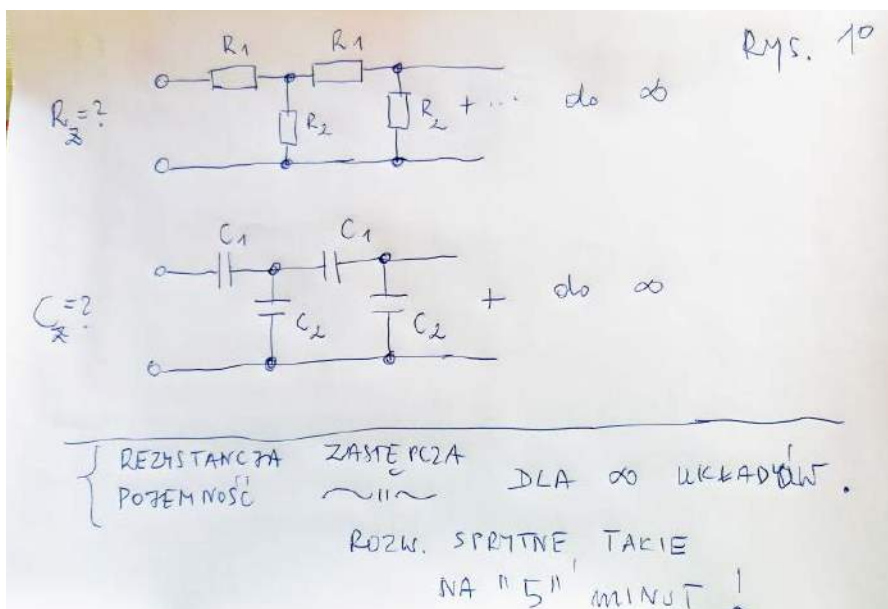 Rys. 10
R1 R1
Rz=? R2 R2 + ... do ∞
C1 C1
Cz=? C2 C2 + do ∞
{ REZYSTANCJA ZASTĘPCZA
POJEMNOŚĆ ~11~ DLA ∞ UKŁADÓW.
ROZW. SPRYTNE, TAKIE
NA "5" MINUT!